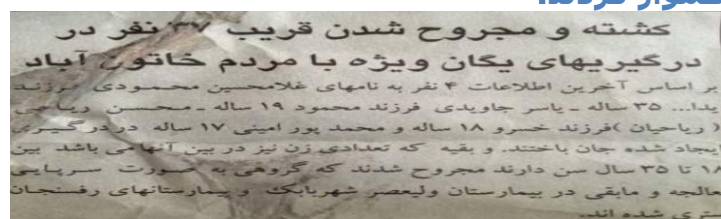 هموار کردند.
کشته و مجروح شدن قریب ۳۷ نفر در
درگیریهای یگان ویژه با مردم خاتون آباد
بر اساس آخرین اطلاعات ۴ نفر به نامهای غلامحسین محمودی فرزند
یدا... ۳۵ ساله ـ یاسر جاویدی فرزند محمود ۱۹ ساله ـ محسن ریاحی
( ریاحیان )فرزند خسرو ۱۸ ساله و محمد پور امینی ۱۷ ساله در درگیری
ایجاد شده جان باختند. و بقیه که تعدادی زن نیز در بین آنها می باشد بین
۱۸ تا ۳۵ سال سن دارند مجروح شدند که گروهی به صورت سرپایی
معالجه و مابقی در بیمارستان ولیعصر شهربابک و بیمارستانهای رفسنجان
بستری شده اند.